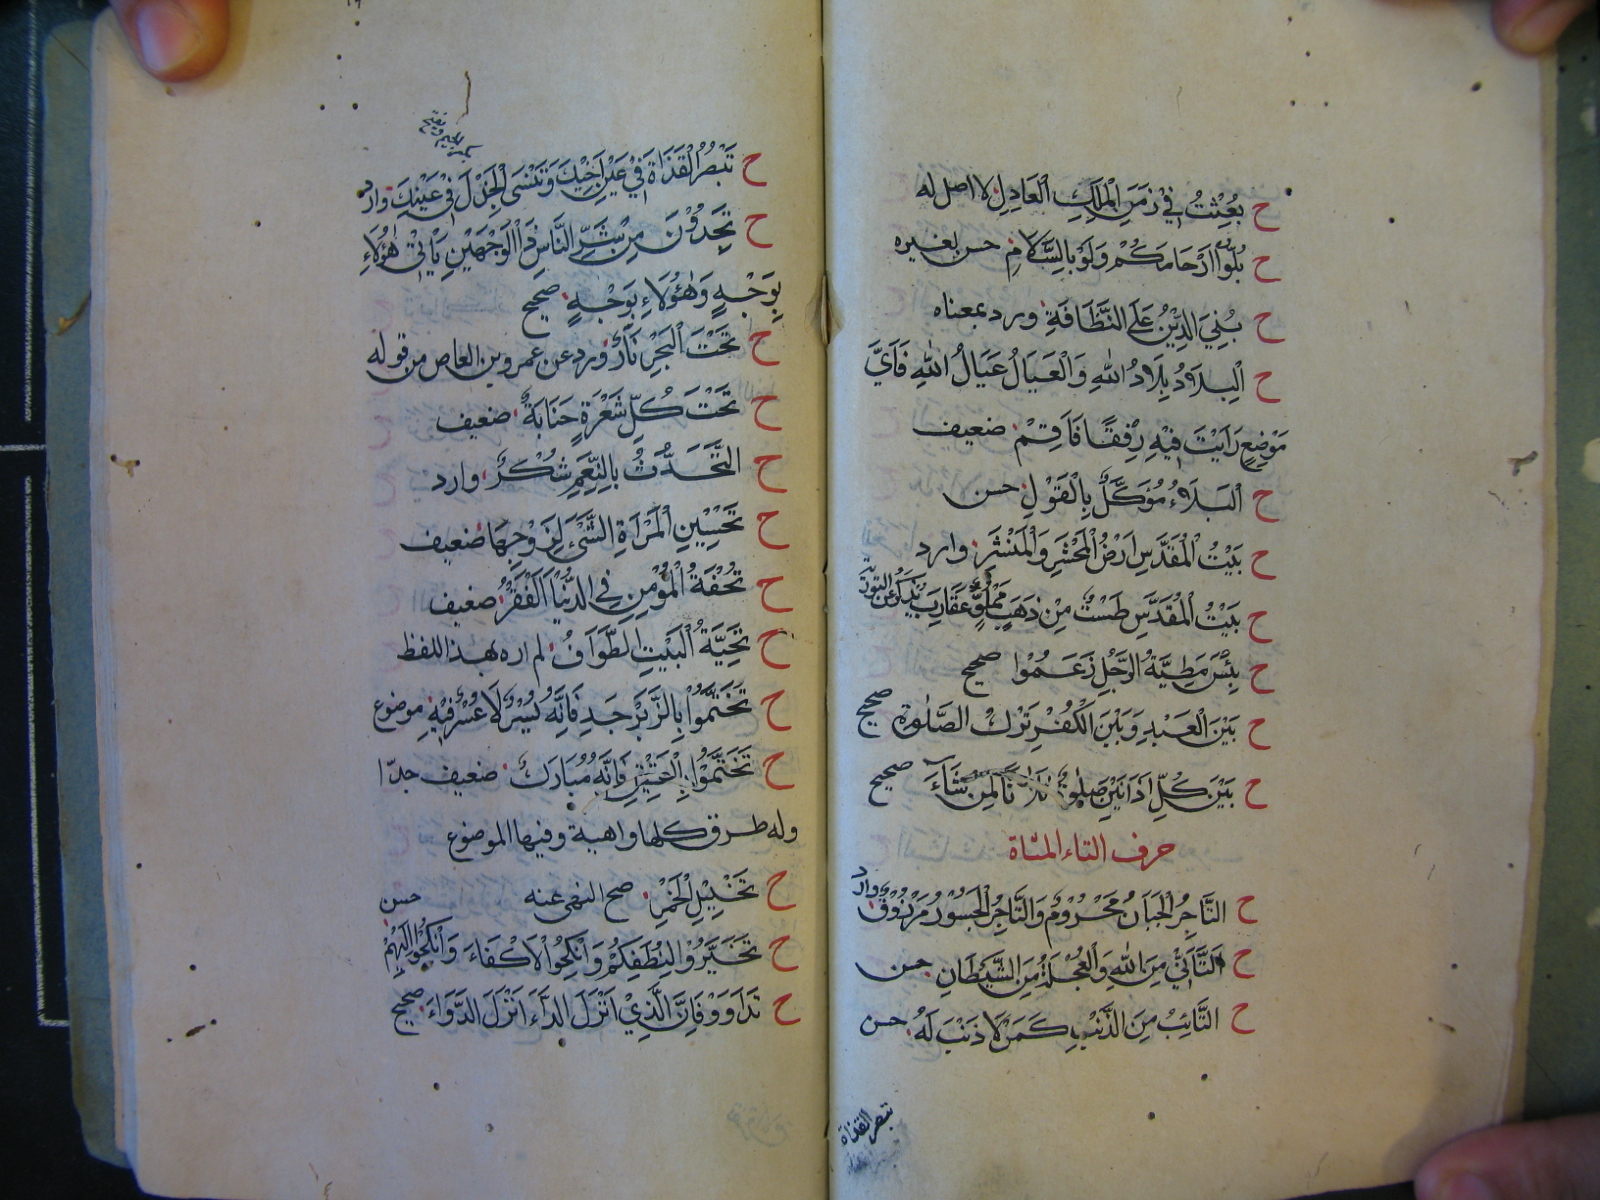 ح بُعِثْتُ فِيْ زَمَنِ الْمَلِكِ الْعَادِلِ لا اصل له
ح بُلُّوْا اَرْحَامَكُمْ وَلَوْ بِالسَّلَامِ حسن لغيره
ح بُنِيَ الدِّيْنُ عَلَى النَّظَافَةِ ورد بمعناه
ح اَلْبِلَادُ بِلَادُ اللهِ وَالْعِيَالُ عِيَالُ اللهِ فَاَيَّ
مَوْضِعٍ رَاَيْتَ فِيْهِ رِفْقًا فَاَقِمْ ضعيف
ح اَلْبَلَاءُ مُوَكَّلٌ بِالْقَوْلِ حسن
ح بَيْتُ الْمَقْدَسِ اَرْضُ الْمَحْشَرِ وَالْمَنْشَرِ وارد
ح بَيْتُ الْمُقَدَّسِ طَسْتٌ مِنْ ذَهَبٍ مَمْلُوٌّ عَقَارِبَ يذكر عن التورية
ح بِئْسَ مَطِيَّةُ الرَّجُلِ زَعَمُوْا صحيح
ح بَيْنَ الْعَبْدِ وَبَيْنَ الْكُفْرِ تَرْكُ الصَّلٰوةِ صحيح
ح بَيْنَ كُلِّ اَذَانَيْنِ صَلٰوةٌ ثَلَاثًا لِمَنْ شَاءَ صحيح
حرف التاء المثناة
ح التَّاجِرُ الْجَبَانُ مَحْرُوْمٌ وَالتَّاجِرُ الْجَسُوْرُ مَرْزُوْقٌ وارد
ح اَلتَّاَنِّيْ مِنَ اللهِ وَالْعُجْلَةُ مِنَ الشَّيْطَانِ حسن
ح التَّائِبُ مِنَ الذَّنْبِ كَمَنْ لَا ذَنْبَ لَهُ حسن
تبصر القذاة
بكسر الجيم وبفتح
ح تَبْصُرُ الْقَذَاةَ فِيْ عَيْنِ اَخِيْكَ وَتَنْسَى الْجِذْلَ فِيْ عَيْنِكَ وارد
ح تَجِدُوْنَ مِنْ شَرِّ النَّاسِ ذَا الْوَجْهَيْنِ يَاْتِيْ هٰؤُلَاءِ
بِوَجْهٍ وَهٰؤُلَاءِ بِوَجْهٍ صحيح
ح تَحْتَ الْبَحْرِ نَارٌ ورد عن عمرو بن العاص من قوله
ح تَحْتَ كُلِّ شَعْرَةٍ جَنَابَةٌ ضعيف
ح التَّحَدُّثُ بِالنِّعَمِ شُكْرٌ وارد
ح تَحْسِيْنِ الْمَرْاَةِ الشَّىْءَ لِزَوْجِهَا ضعيف
ح تُحْفَةُ الْمُؤْمِنِ فِي الدُّنْيَا اَلْفَقْرُ ضعيف
ح تَحِيَّةُ الْبَيْتِ الطَّوَافُ لم اره بهذا اللفظ
ح تَخَتَّمُوْا بِالزَّبَرْجَدِ فَاِنَّهُ يُسْرٌ لَا عُسْرَ فِيْهِ موضوع
ح تَخَتَّمُوْا بِالْعَقِيْقِ فَاِنَّهُ مُبَارَكٌ ضعيف جدّا
وله طرق كلها واهية وفيها الموضوع
ح تَخْلِيْلِ الْخَمْرِ صح النهى عنه
ح تَخَيَّرُوْا لِنُطَفِكُمْ وَانْكِحُوا الْاَكْفَاءَ وَانْكِحُوْا اِلَيْهِمْ حسن
ح تَدَاوَوْ فَاِنَّ الَّذِيْ اَنْزَلَ الدَّاءَ اَنْزَلَ الدَّوَاءَ صحيح